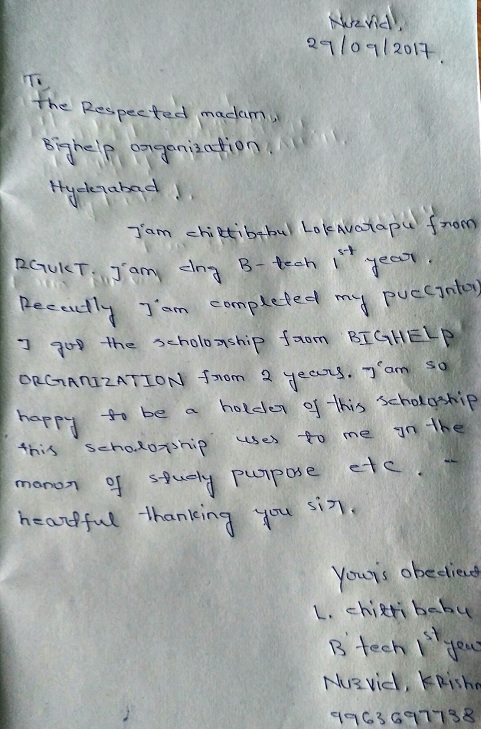 Nuzvid,
29/09/2017.
To
The Respected madam,
Bighelp organization.
Hyderabad.
I'am chittibabu Lokavarapu from
RGUKT. I'am dng B-tech 1st year.
Recently I'am completed my PUC(Inter)
I got the scholorship from BIGHELP
ORGANIZATION from 2 years. I'am so
happy to be a holder of this scholoship
this scholorship uses to me in the
manor of study purpose etc.
heardful thanking you sir.
Your's obedient
L. chitti babu
B tech 1st year
Nuzvid, Krishn
9963697738